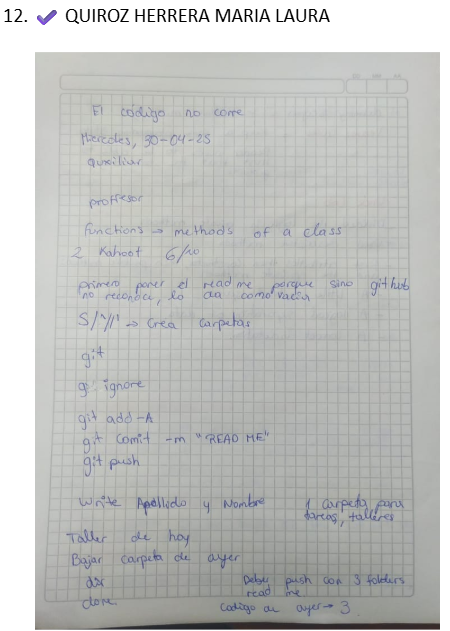 12. ✔ QUIROZ HERRERA MARIA LAURA
El código no corre
Miercoles, 30-04-25
auxiliar
proffesor
functions → methods of a class
2 Kahoot 6/10
primero poner el read me porque sino github
no reconoce, lo da como vacia
→ Crea carpetas
git
g. ignore
git add -A
git comit -m "READ ME"
git push
Write Apellido y Nombre 1 carpeta para
tareas, talleres
Taller de hoy
Bajar carpeta de ayer
dir Deber push con 3 folders
clone read me
Codigo de ayer → 3